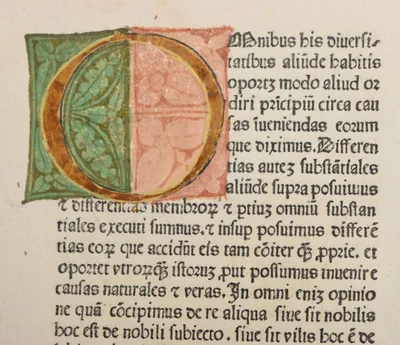 OMnibus his diuersi⸗
tatibus aliũde habitis
oportꝫ modo aliud or
diri prĩcipiũ circa cau
sas ĩueniendas eorum
que diximus. Differen
tias auteꝫ substãtiales
aliũde supra posuimus
⁊ differentias membroꝝ ⁊ ꝑtiuꝫ omniũ substan
tiales executi sumus. ⁊ insuꝑ posuimus differẽ
tias eoꝝ que accidũt eis tam cõiter qꝫ̃ ꝓprie. et
oportet vtrorũqꝫ istoruꝫ ꝓut possumus inuenire
causas naturales ⁊ veras. In omni eniꝫ opinio
ne quã cõcipimus de re aliqua siue sit nobilis
hoc est de nobili subiecto. siue sit vilis hoc ẽ de